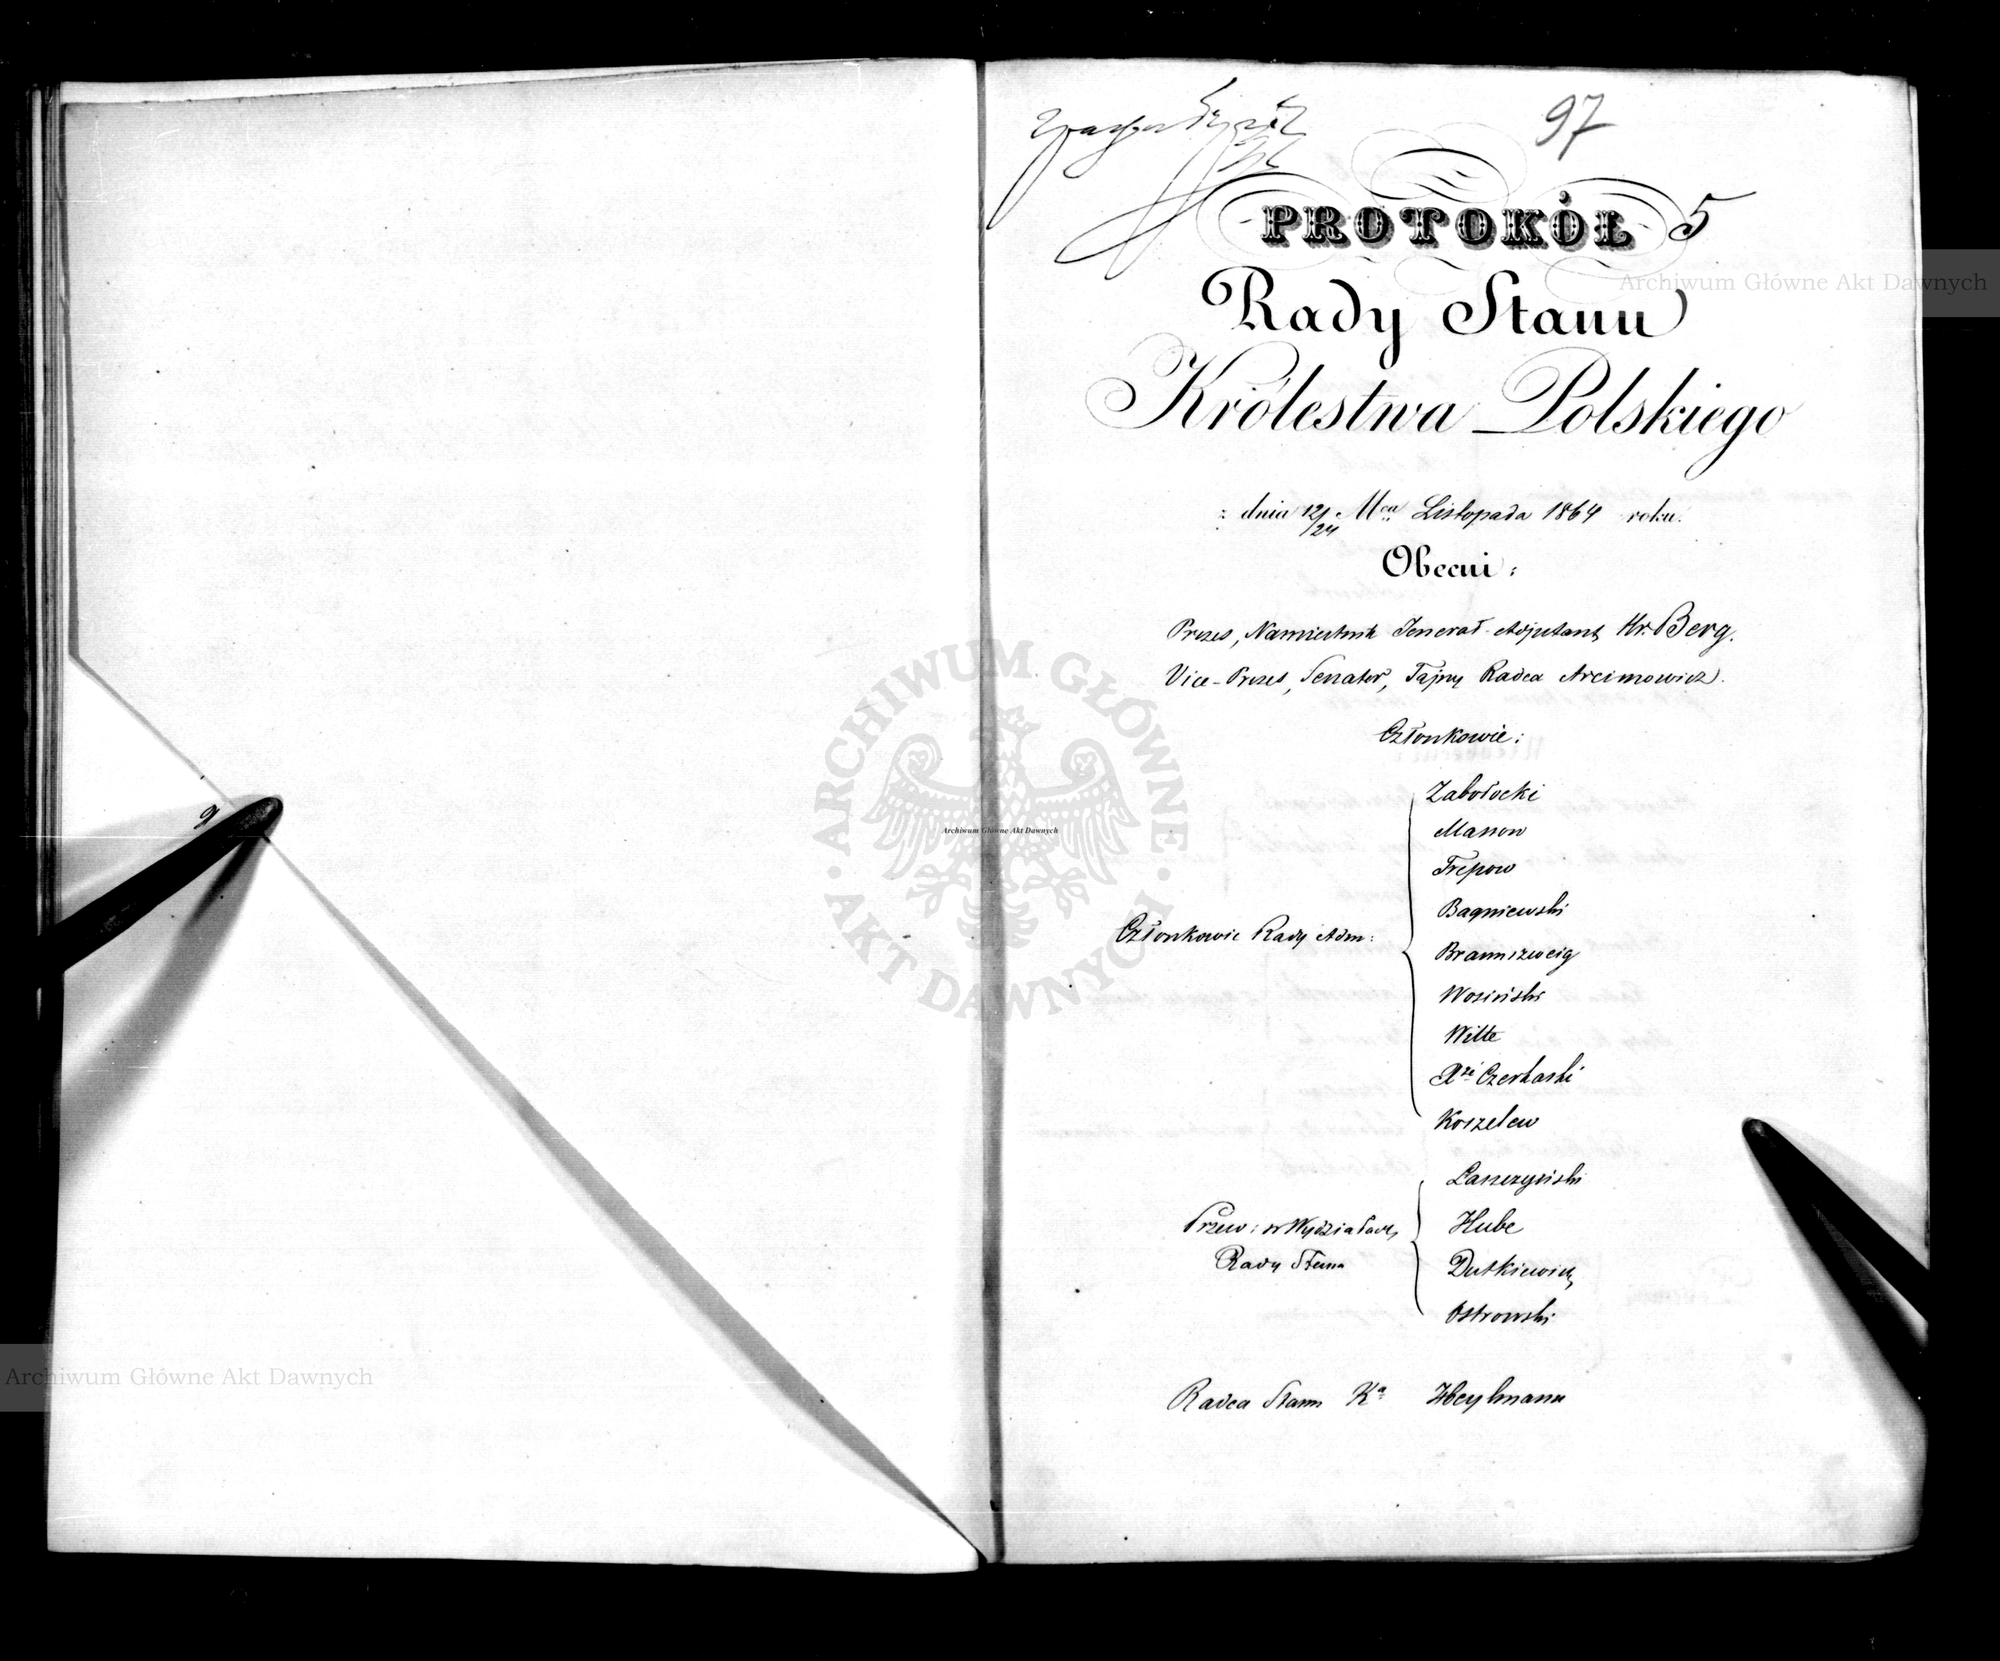 97
PROTOKÓŁ 5
Rady Stanu
Królestwa Polskiego
z dnia 12/24 Mca Listopada 1864 roku.
Obecni:
Prezes, Namiestnik Jenerał-Adjutant Hr. Berg.
Vice-Prezes, Senator, Tajny Radca Arcimowicz.
Członkowie:
Członkowie Rady Adm:
Zabołocki
Manow
Trepow
Bagniewski
Braunszweig
Wosiński
Witte
Xże Czerkaski
Koszelew
Przew: w Wydziałach
Rady Stanu
Łaszczyński
Hube
Dutkiewicz
Ostrowski
Radca Stanu Ka Heylmann
Archiwum Główne Akt Dawnych
Archiwum Główne Akt Dawnych
Archiwum Główne Akt Dawnych
ARCHIWUM GŁÓWNE
AKT DAWNYCH